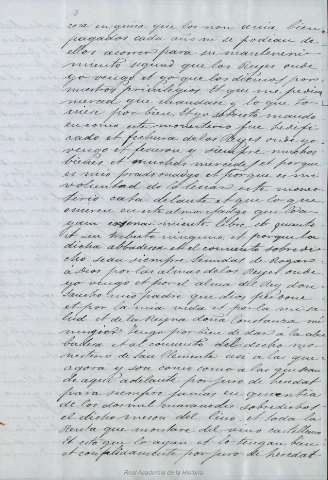 2
en guisa que los non avia bien
pagados cada año ni se podian de
ellos acorrer para su manteni
miento segund que los Reyes onde
yo vengo et yo que los diemos por
nuestros privilegios et que me pedian
merced que mandase y lo que to
viese por bien Et yo sobresto mando
en como este monesterio fue hedefi
cado et fechura de los Reyes onde yo
vengo et ficieron y siempre muchos
bienes et muchas mercedes et porque
es mio pradesonadgo et porque es mi
voluntad de llevar este mones
terio cabadelante et que lo que
ovieren en este almoxarifadgo que lo
ayan esento libre et quanto
et sin embargo ninguno et porque la
dicha abbadesa et el convento sobredi
cho sean siempre tenudas de Rogar
á Dios por las almas de los Reyes onde
yo vengo et por el alma del Rey don
Sancho mio padre que dios perdone
et por la mia vida et por la mi sa
lud et de la Reyna doña Costanza mi
muger Tengo por bien de dar á la ab
badesa et al convento del dicho mo
nesterio de San Clemente asi a las que
agora y son como á las que seran
de aqui adelante por juro de heredat
para siempre jamas en quenta
de los dos mil maravedis sobredichos
el dicho meson del Vino et toda la
Renta que montare del vino castellano
Et esto que lo ayan et lo tengan bien
et complidamente por juro de heredat
Real Academia de la Historia